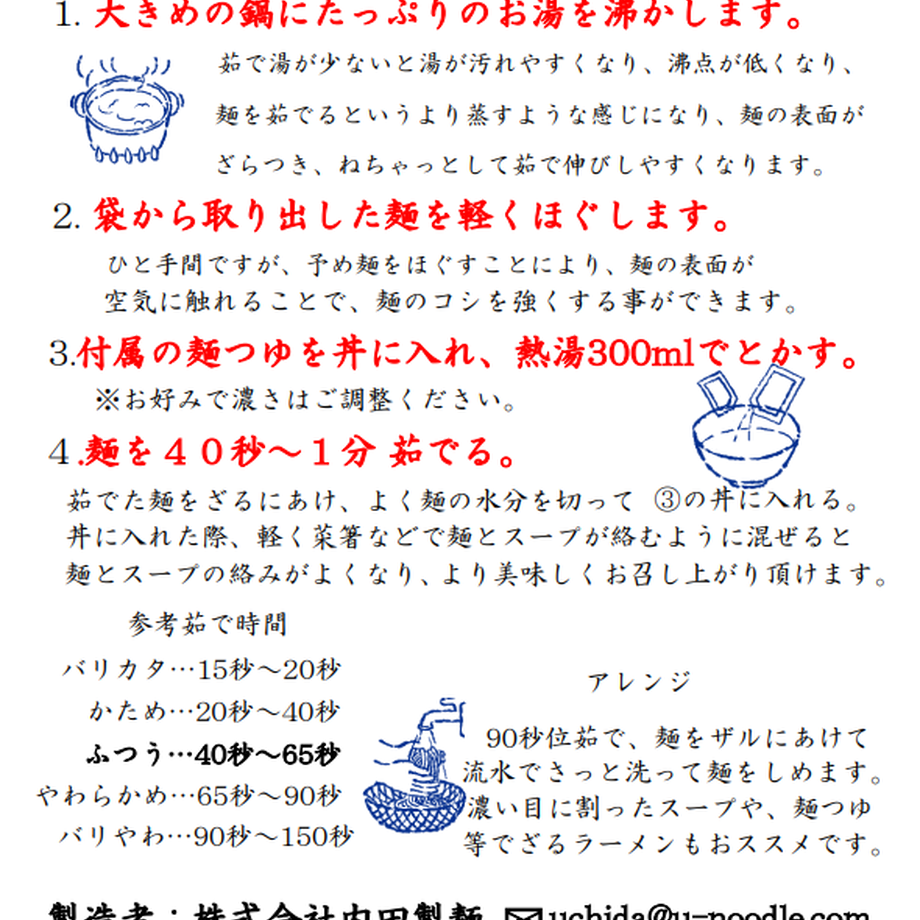 1. 大きめの鍋にたっぷりのお湯を沸かします。
茹で湯が少ないと湯が汚れやすくなり、沸点が低くなり、
麺を茹でるというより蒸すような感じになり、麺の表面が
ざらつき、ねちゃっとして茹で伸びしやすくなります。
2. 袋から取り出した麺を軽くほぐします。
ひと手間ですが、予め麺をほぐすことにより、麺の表面が
空気に触れることで、麺のコシを強くする事ができます。
3.付属の麺つゆを丼に入れ、熱湯300mlでとかす。
※お好みで濃さはご調整ください。
4.麺を４０秒～１分 茹でる。
茹でた麺をざるにあけ、よく麺の水分を切って ③の丼に入れる。
丼に入れた際、軽く菜箸などで麺とスープが絡むように混ぜると
麺とスープの絡みがよくなり、より美味しくお召し上がり頂けます。
参考茹で時間
バリカタ…15秒～20秒
かため…20秒～40秒
ふつう…40秒～65秒
やわらかめ…65秒～90秒
バリやわ…90秒～150秒
アレンジ
90秒位茹で、麺をザルにあけて
流水でさっと洗って麺をしめます。
濃い目に割ったスープや、麺つゆ
等でざるラーメンもおススメです。
製造者：株式会社内田製麺 uchida@u-noodle.com